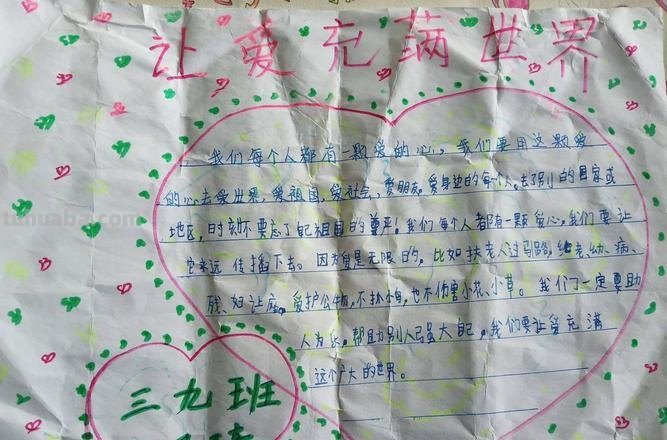 让爱充满世界
我们每个人都有一颗爱的心,我们要用这颗爱
的心去爱出来,爱祖国,爱社会,爱朋友,爱身边的每个人。去别的国家或
地区,时刻不要忘了自己祖国的尊严!我们每个人都有一颗爱心,我们要让
它永远传播下去。因为爱是无限的,比如扶老人过马路,给老、幼、病、
残、妇让座,爱护公物,不扒小鸟,也不伤害小花、小草。我们一定要助
人为乐,帮助别人己虽大自己,我们要让爱充满
这个广大的世界。
三九班
tuhuaba.com